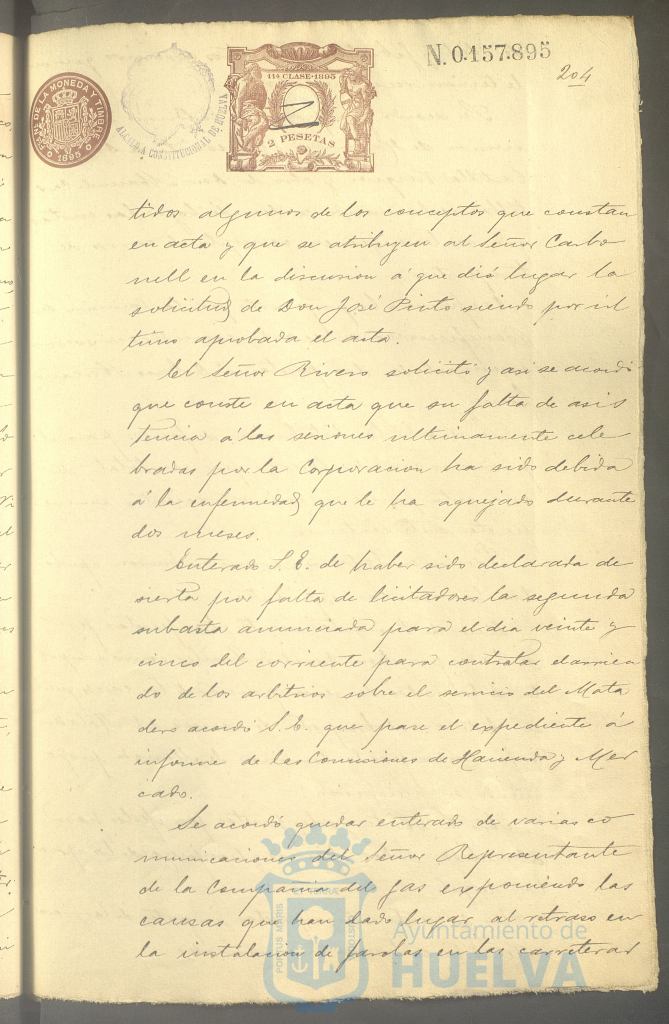 N. 0.157.895
204
11ª CLASE-1895
2 PESETAS
DE LA MONEDA Y TIMBRE
1895
ALCALDIA CONSTITUCIONAL DE HUELVA
tidos algunos de los conceptos que constan
en acta y que se atribuyen al Señor Carbo
nell en la discusion á que dió lugar la
solicitud de Don José Pinto siendo por ul
timo aprobada el acta.
El Señor Rivero solicitó y asi se acordó
que conste en acta que su falta de asis
tencia á las sesiones ultimamente cele
bradas por la Corporacion ha sido debida
á la enfermedad que le ha aquejado durante
dos meses.
Enterado S. E. de haber sido declarada de
sierta por falta de licitadores la segunda
subasta anunciada para el dia veinte y
cinco del corriente para contratar el arrien
do de los arbitrios sobre el servicio del Mata
dero acordó S. E. que pase el expediente á
informe de las Comisiones de Hacienda y Mer
cado.
Se acordó quedar enterado de varias co
municaciones del Señor Representante
de la Compañia del gas exponiendo las
causas que han dado lugar al retraso en
la instalacion de farolas en las carreteras
Ayuntamiento de
HUELVA